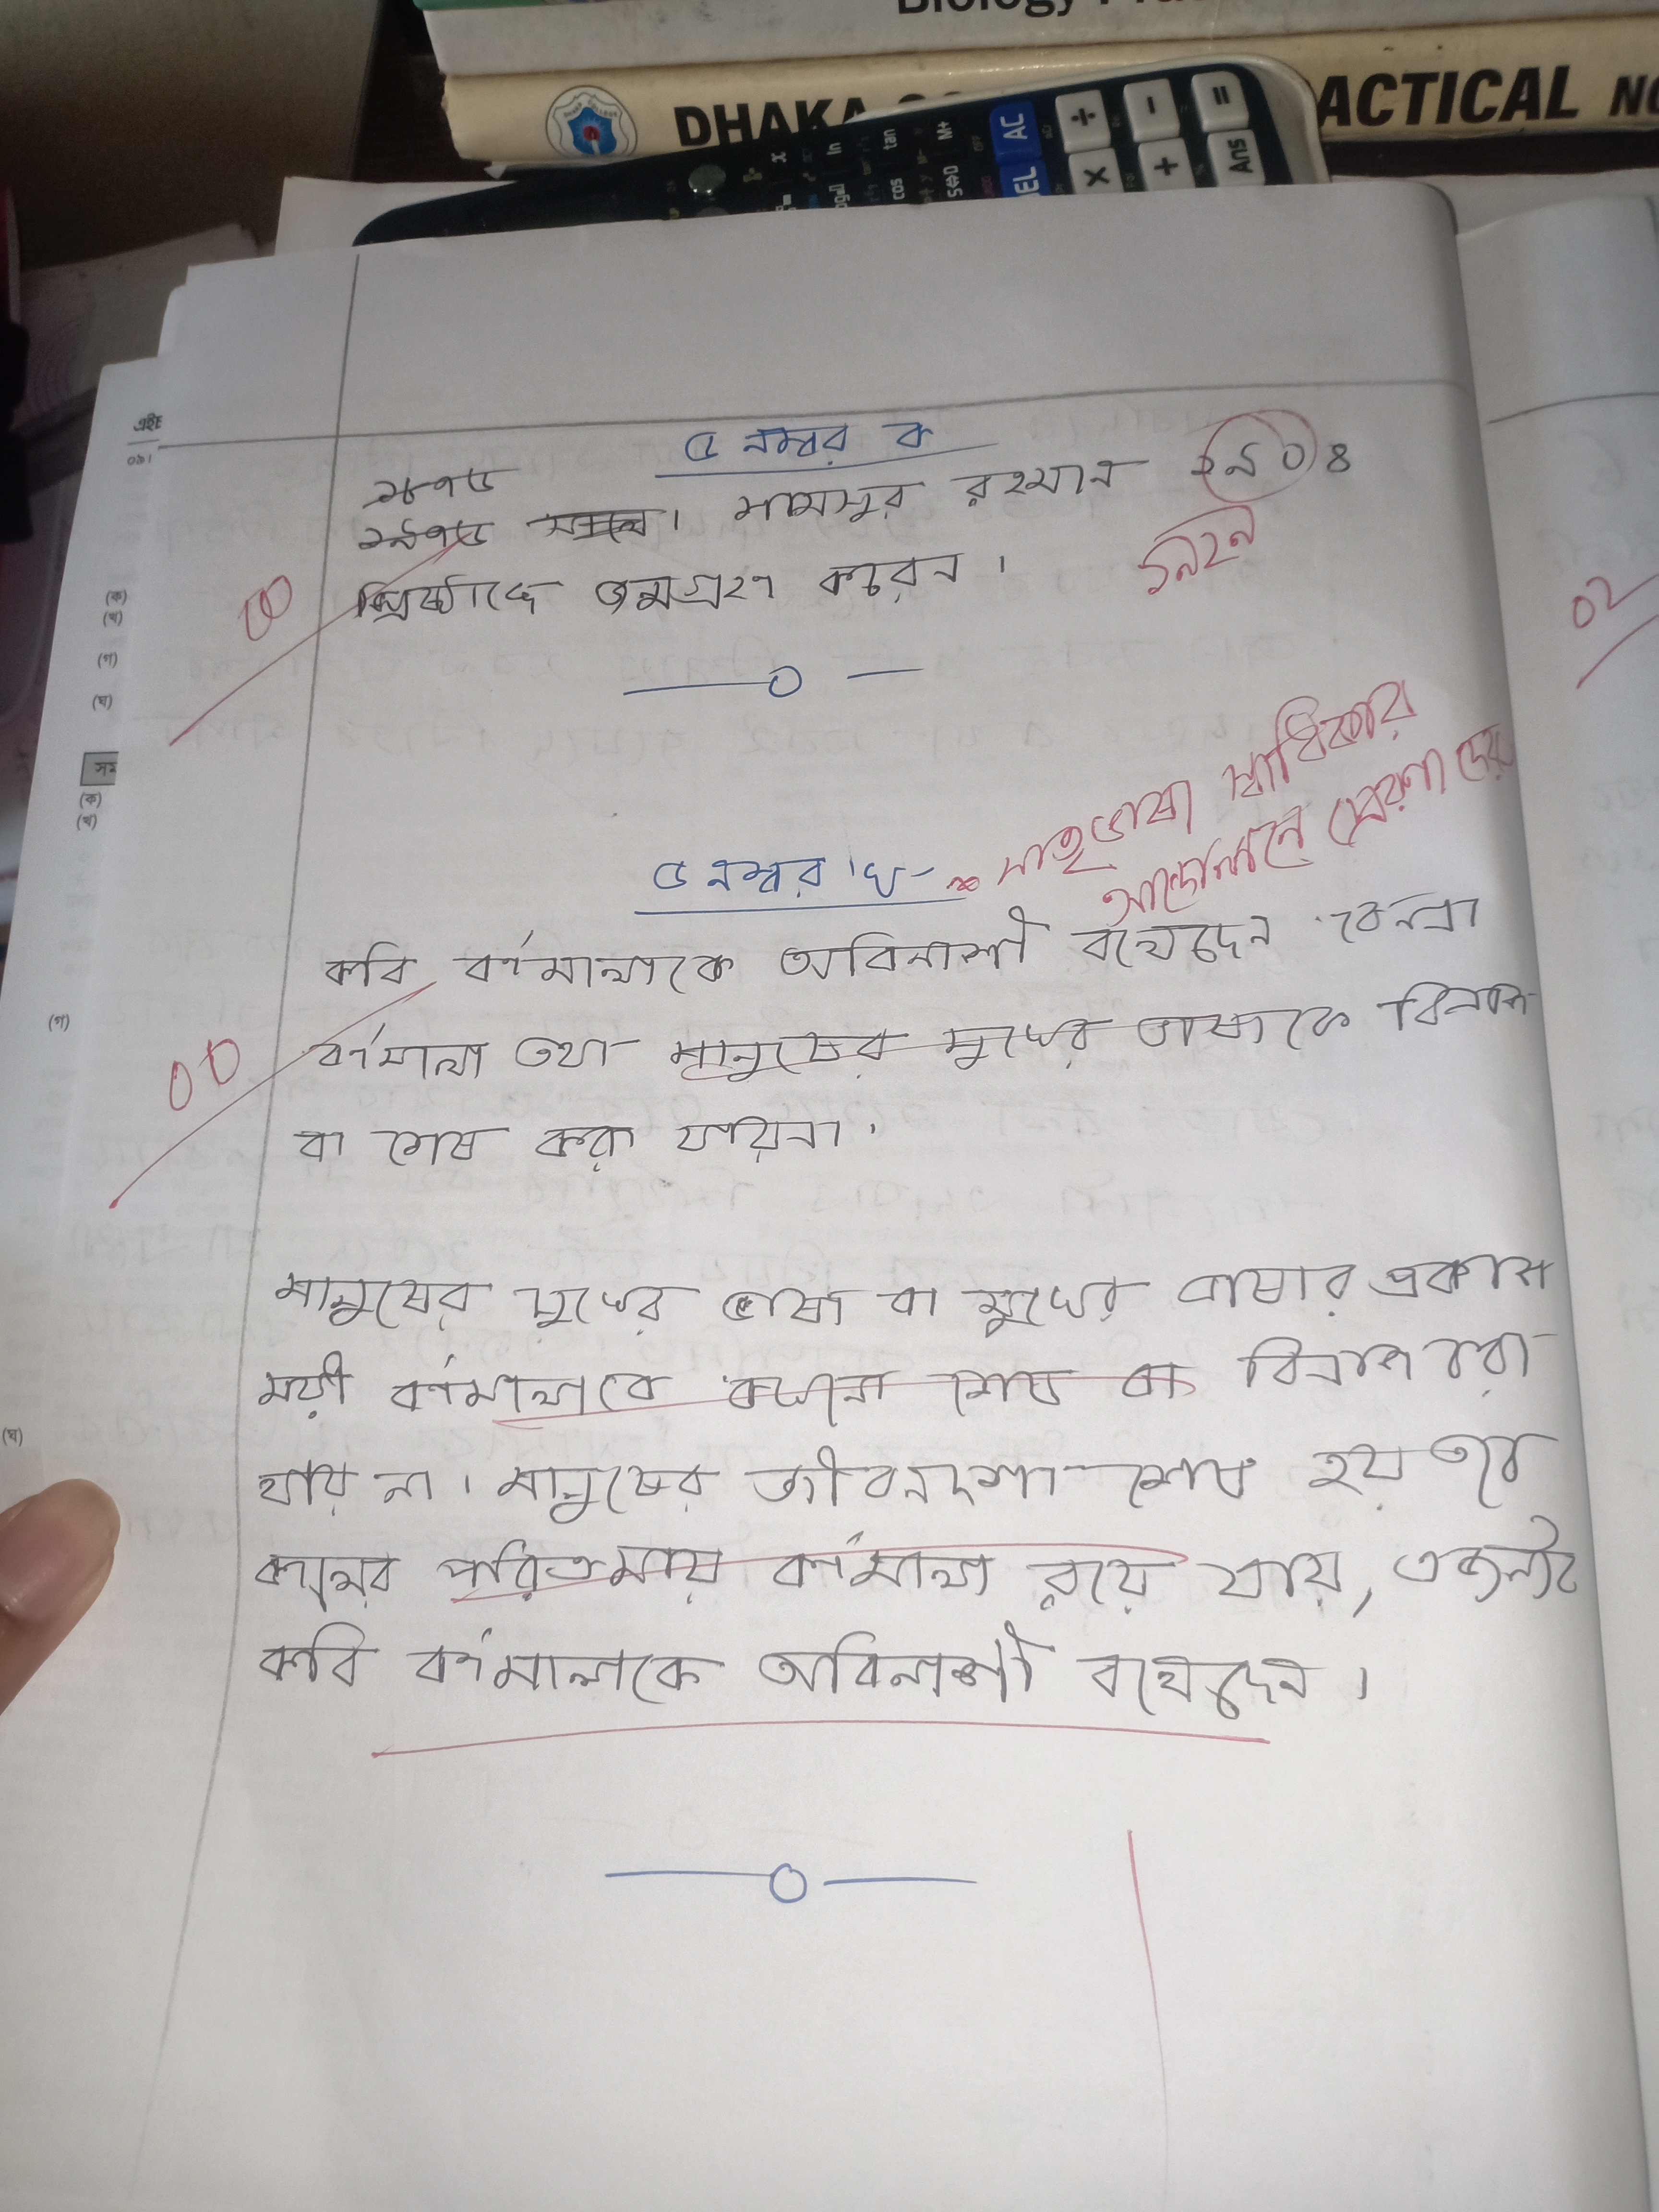 Biology Pra
DHAKA CO
ACTICAL NO
AC
Ans
M+
S⇔D
tan
cos
ln
এইচ
৫ নম্বর ক
শামসুর রহমান ১৯০৪
খ্রিষ্টাব্দে জন্মগ্রহণ করেন।
১৯২৯
00
(ক)
(খ)
(গ)
(ঘ)
02
মাতৃভাষা স্বাধিকার
আন্দোলনে প্রেরণা দেয়
৫ নম্বর 'খ'
কবি বর্ণমালাকে অবিনাশী বলেছেন কেননা
বর্ণমালা তথা মানুষের মুখের ভাষাকে বিনাশ
বা শেষ করা যায়না।
00
(ক)
(খ)
(গ)
মানুষের মুখের ভাষা বা মুখের ভাষার প্রকাশ
ময়ী বর্ণমালাকে কখনো শেষ বা বিনাশ করা
যায় না। মানুষের জীবনদশা শেষ হয় তবে
কালের পরিক্রমায় বর্ণমালা রয়ে যায়, এজন্যই
কবি বর্ণমালাকে অবিনাশী বলেছেন।
(ঘ)